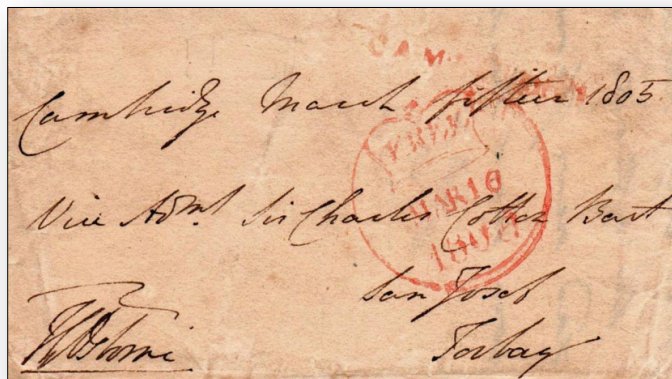 CAM
Cambridge March fifteen 1805
FREE
MAR 16
1805
Vice Adml Sir Charles Cotton Bart
San Josef
Osborne Torbay